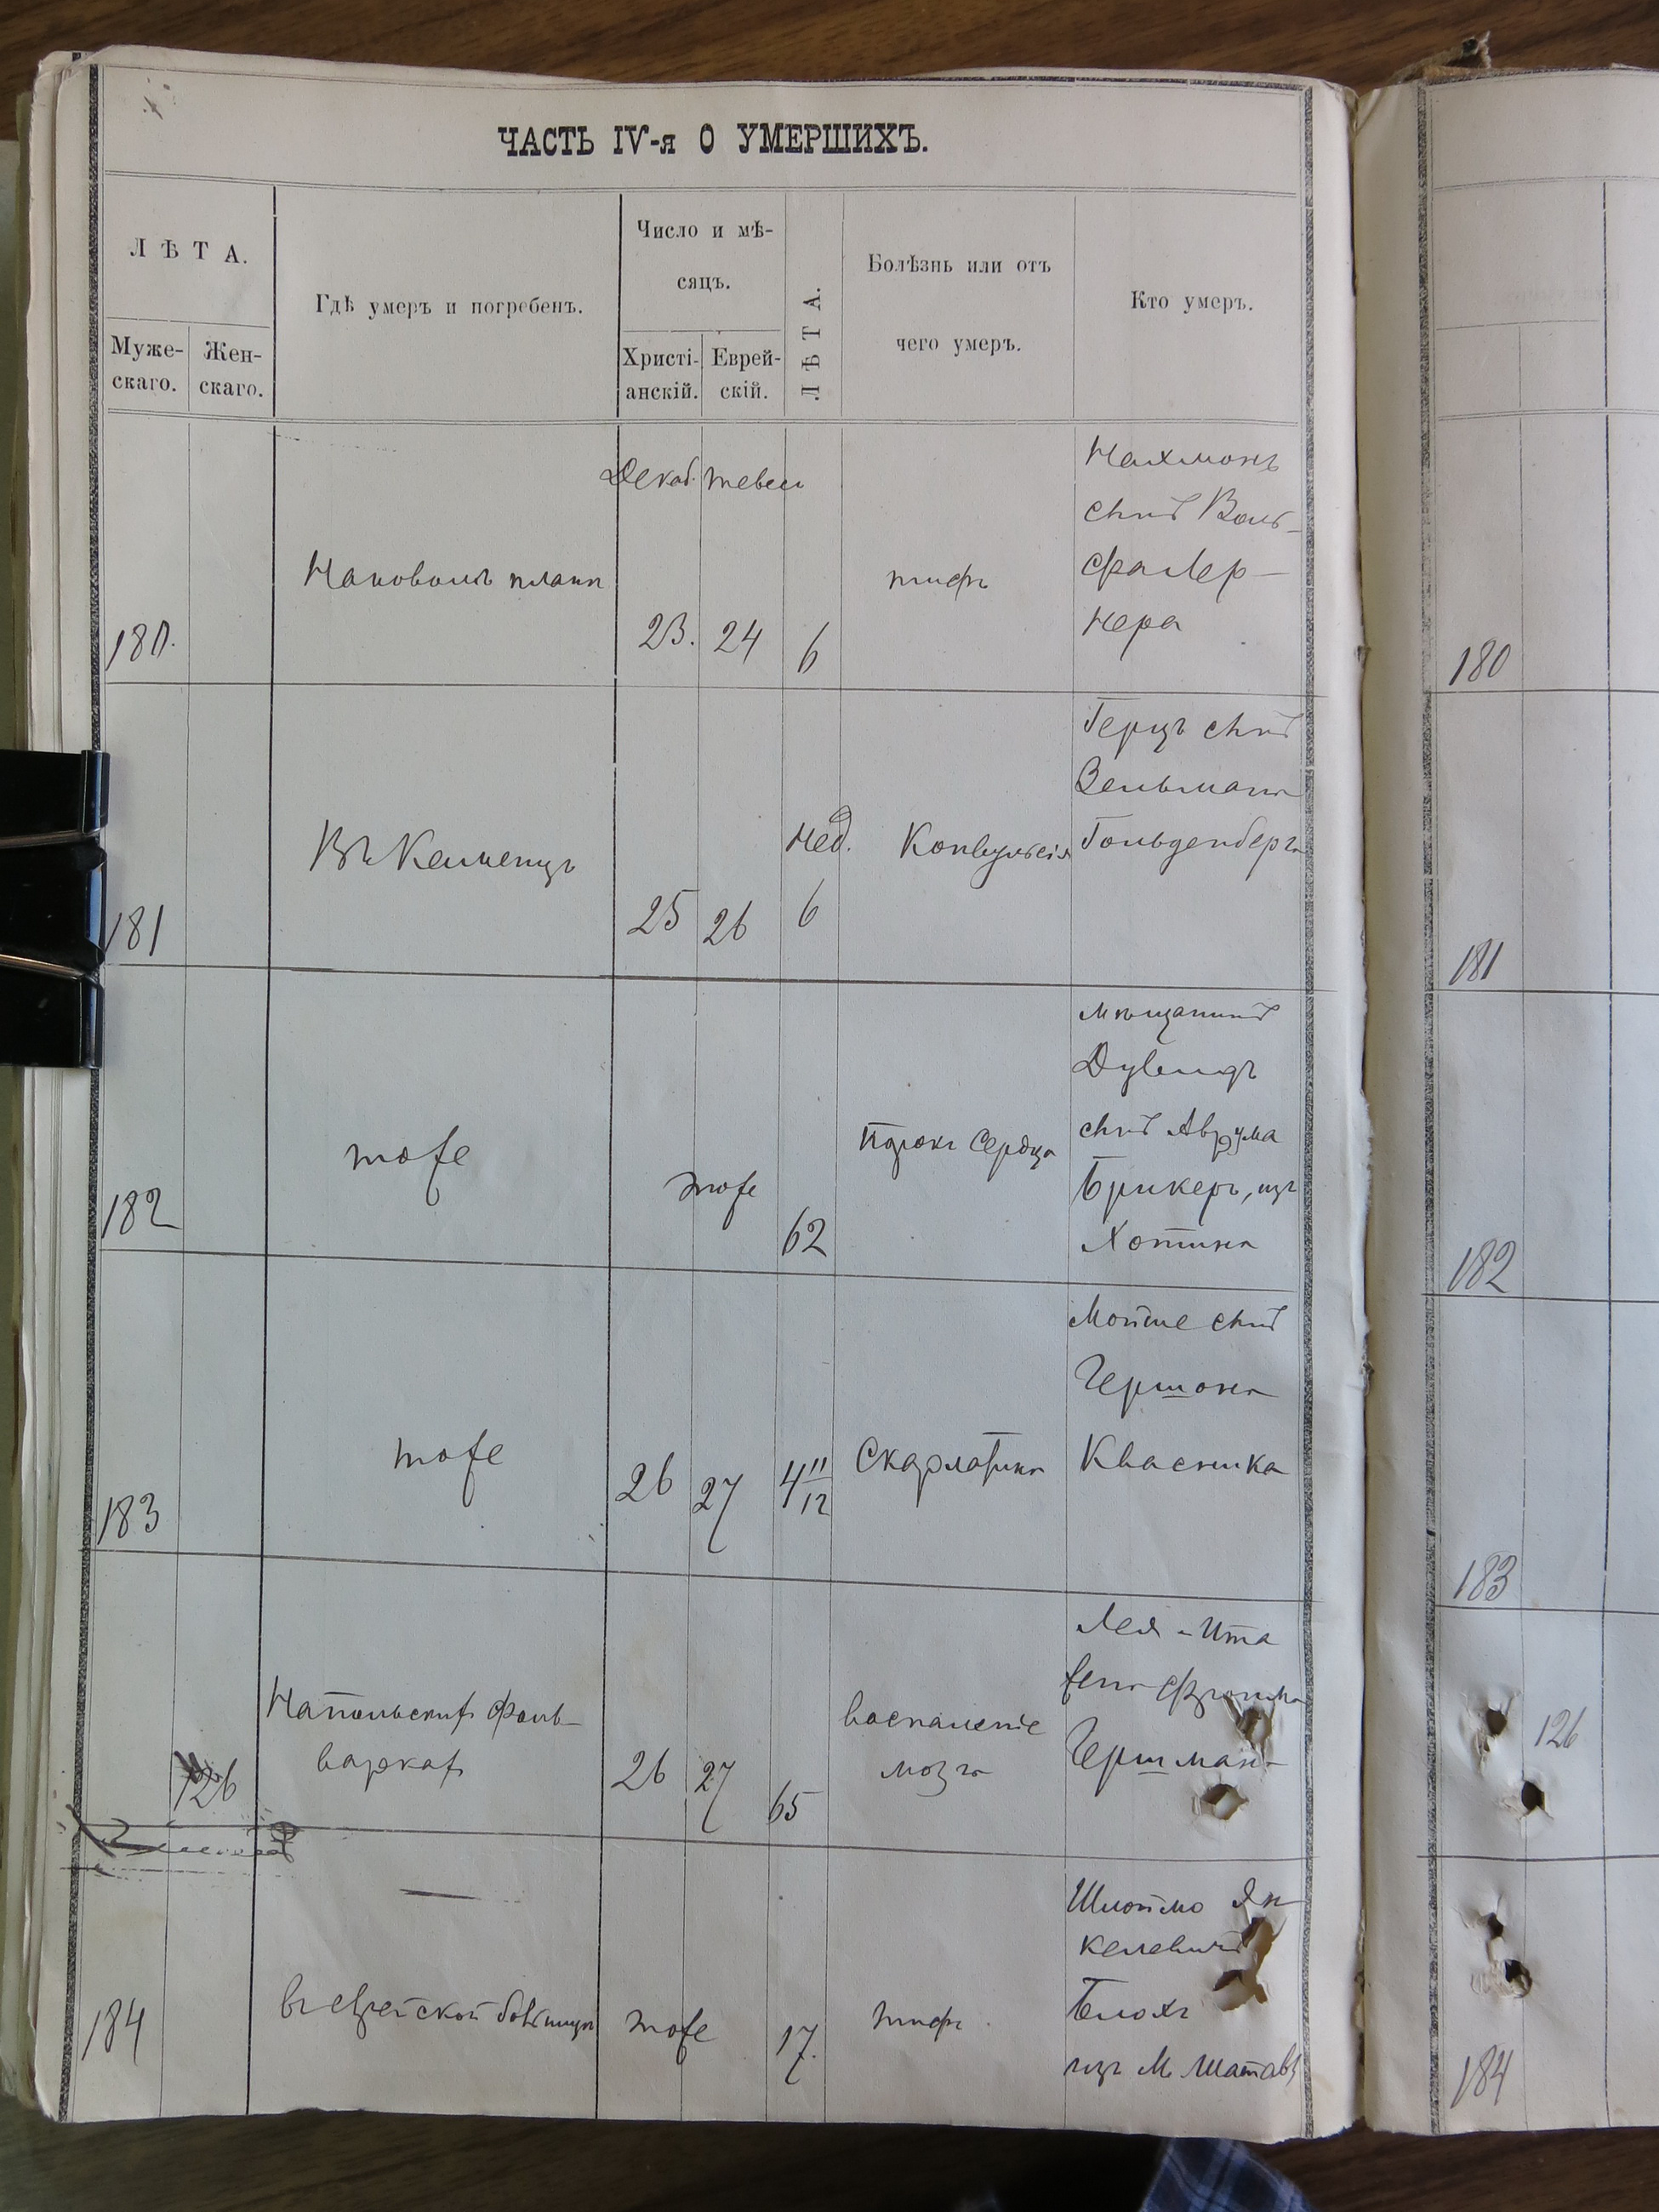 ЧАСТЬ IV-я О УМЕРШИХЪ.
ЛѢТА.
Муже-
скаго.
Жен-
скаго.
Гдѣ умеръ и погребенъ.
Число и мѣ-
сяцъ.
Христі-
анскій.
Еврей-
скій.
ЛѢТА.
Болѣзнь или отъ
чего умеръ.
Кто умеръ.
Декаб. тевеса
180.
На новомъ планѣ
23. 24 6
тифъ
Нахманъ
сынъ Воль-
фа Лер-
нера
180
181
Въ Каменцѣ
25 26
нед.
6
Конвульсія
Герцъ сынъ
Зельмана
Гольденберга
181
182
тоже
тоже
62
Порокъ Сердца
мѣщанинъ
Дувидъ
сынъ Аврума
Брикеръ, изъ
Хотина
182
183
тоже
26 27 4 11/12
Скарлатина
Мойше сынъ
Гершона
Квасника
183
126
На польскихъ фоль-
варкахъ
26 27 65
воспаленіе
мозга
Лея-Ита
жена Фроима
Гершмана
126
184
въ еврейской больницѣ
тоже
17.
тифъ
Шлоймо Ян-
келевичъ
Блохъ
изъ М. Шатавы
184